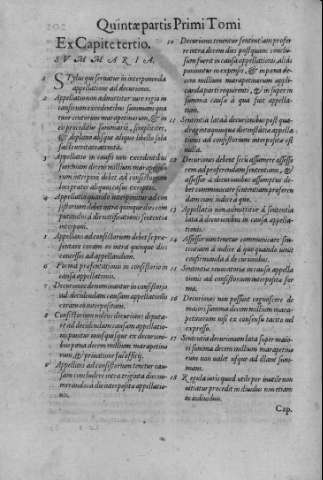 Quintæ partis Primi Tomi
Ex Capite tertio.
SVMMARIA.
1 Stylus qui servatur in interponenda
appellatione ad decuriones.
2 Appellatio non admittitur iure regio in
causis non excedentibus summam
centorum marapetinorum, & in
eis proceditur summariè, simpliciter,
& de plano absque aliquo libello sola
facti veritate attenta.
3 Appellatio in causis non excedentibus
summam decem millium
interponi debet ad consistorium
præter aliquos casus exceptos.
4 Appellatio quando interponitur ad
sistorium debet intra quinque dies
putandos à die notificationis sententiæ
interponi.
5 Appellans ad consistorium debet se præ
sentare coram eo intra quinque dies
ad appellandum.
6 Forma præsentationis in consistorio in
causa appellationis.
7 Decuriones denominantur in consistorio
ad decidendum causam appellationis
coram eo interpositam.
8 Consistorium nolens decuriones deputa
re ad decidendum causam appellatio
nis punitur
pœna decem millium marapetino
rum, & privatione sui officij.
9 Appellans ad consistorium tenetur cau
sam concludere intra triginta dies nu
merandos à die interpositæ appellatio
nis.
10 Decuriones tenentur sententiam profer
re intra decem dies postquam conclu
sum fuerit in causa appellationis aliàs
puniuntur in expensis, & in pœna de
cem millium marapetinorum appli
canda parti requirenti, & in super in
summa causæ à qua fuit appella
tum.
11 Sententia lata à decurionibus post qua
dragenta quinque dies
nis ad consistorium interpositæ est
nulla.
12 Decuriones debent secum assumere assesso
rem ad proferendam sententiam, &
assessor à decurionibus assumptus de
bet communicare sententiam proferen
dam cum iudice à quo.
13 Appellatio non admittitur à sententia
lata à decurionibus in causa appella
tionis.
14 Assessor non tenetur communicare sen
tentiam à iudice à quo quando venit
confirmanda à decurionibus.
15 Sententiæ revocatoriæ in causa appella
tionis ad consistorium interpositæ for
ma.
16 Decuriones non possunt cognoscere de
maiori summa decem millium mara
petinorum nisi ex consensu tacito vel
expresso.
17 Sententia decurionum lata super maio
ri summa decem millium marapetino
rum non valet usque ad illam sum
mam.
18 Regula iuris quod utile per inutile non
vitiatur procedit in dividuis non etiam
in individuis.
Cap.